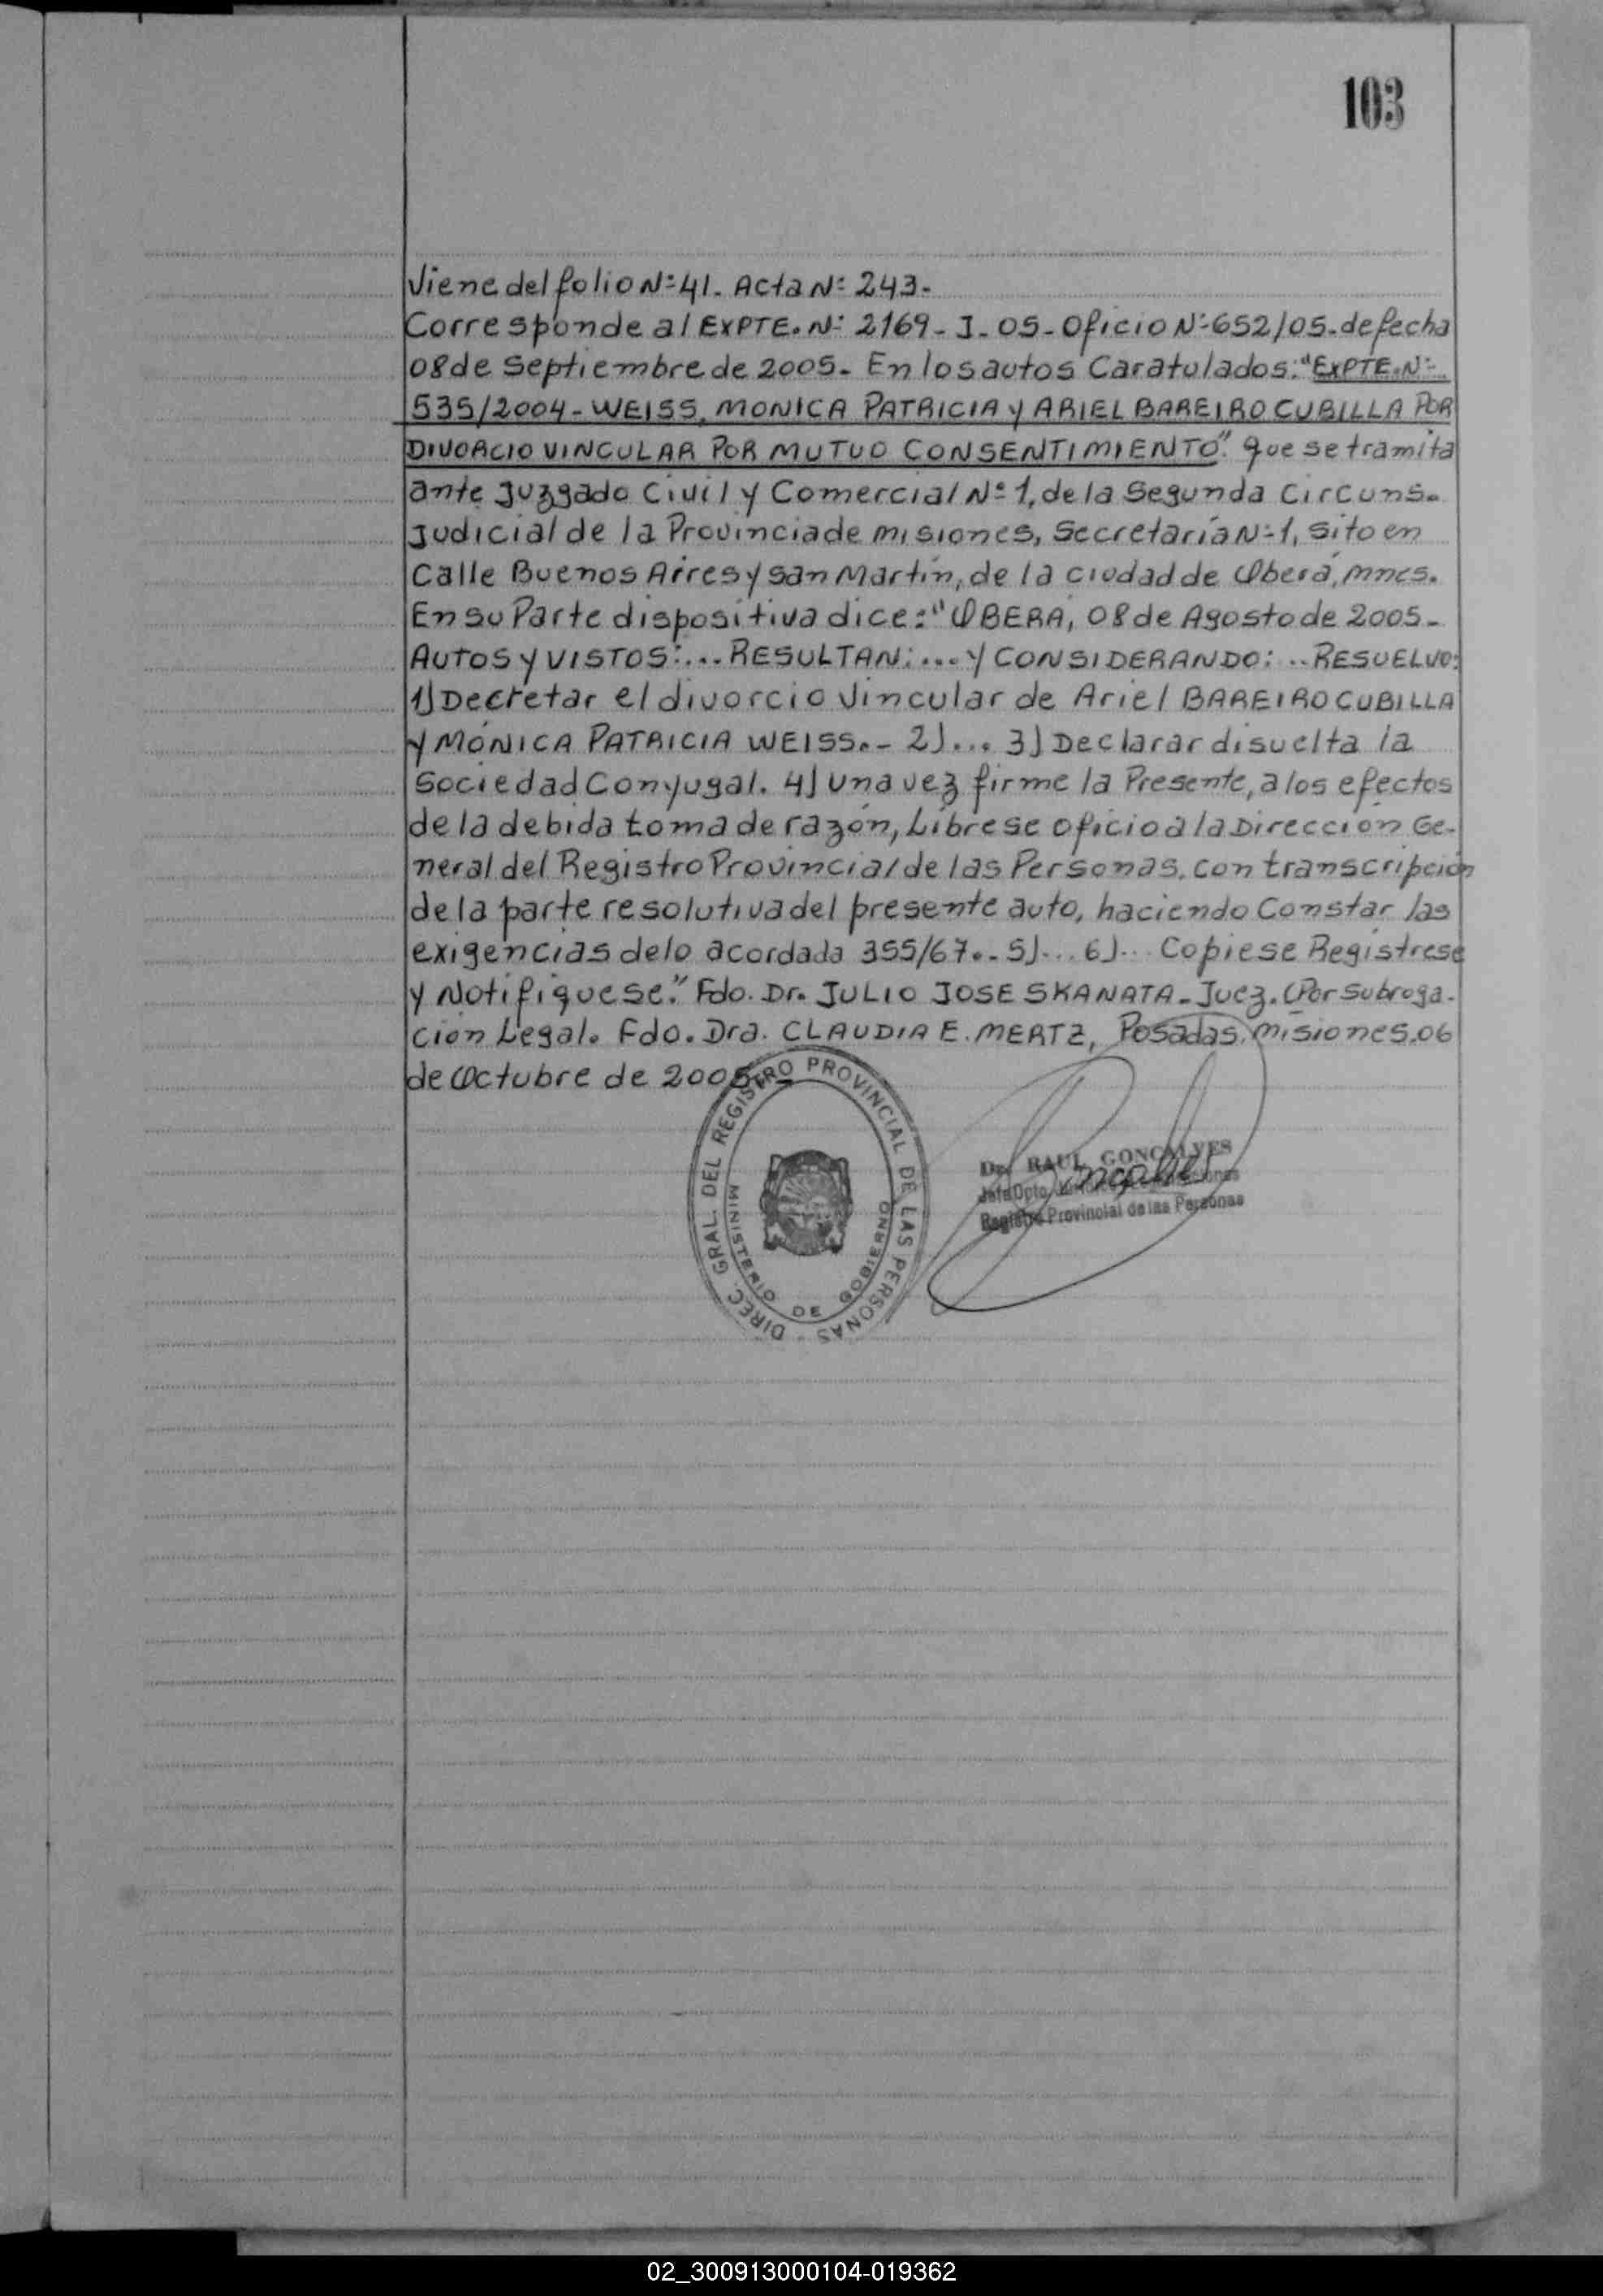 103
Viene del folio Nº 41. Acta Nº 243.
Corresponde al EXPTE. Nº 2169-J-05-Oficio Nº 652/05-de fecha
08 de Septiembre de 2005. En los autos Caratulados: "EXPTE. Nº
535/2004-WEISS, MONICA PATRICIA y ARIEL BAREIRO CUBILLA POR
DIVORCIO VINCULAR POR MUTUO CONSENTIMIENTO". que se tramita
ante Juzgado Civil y Comercial Nº 1, de la Segunda Circuns.
Judicial de la Provincia de misiones, Secretaría Nº 1, sito en
Calle Buenos Aires y San Martín, de la ciudad de Oberá, mnes.
En su Parte dispositiva dice: "OBERA, 08 de Agosto de 2005-
AUTOS Y VISTOS:... RESULTAN:.... Y CONSIDERANDO:.. RESUELVO:
1) Decretar el divorcio Vincular de Ariel BAREIRO CUBILLA
Y MÓNICA PATRICIA WEISS.- 2)... 3) Declarar disuelta la
Sociedad Conyugal. 4) Una vez firme la Presente, a los efectos
de la debida toma de razón, Líbrese oficio a la Dirección Ge-
neral del Registro Provincial de las Personas, con transcripción
de la parte resolutiva del presente auto, haciendo Constar las
exigencias de lo acordada 355/67.- 5)... 6)... Copiese Regístrese
y Notifíquese." Fdo. Dr. JULIO JOSE SKANATA-Juez. (Por Subroga-
ción Legal. Fdo. Dra. CLAUDIA E. MERTZ, Posadas, misiones, 06
de Octubre de 2005.-
DIREC. GRAL. DEL REGISTRO PROVINCIAL DE LAS PERSONAS
MINISTERIO DE GOBIERNO
Dr. RAUL GONCALVES
Jefe Dpto.
Registro Provincial de las Personas
02_300913000104-019362